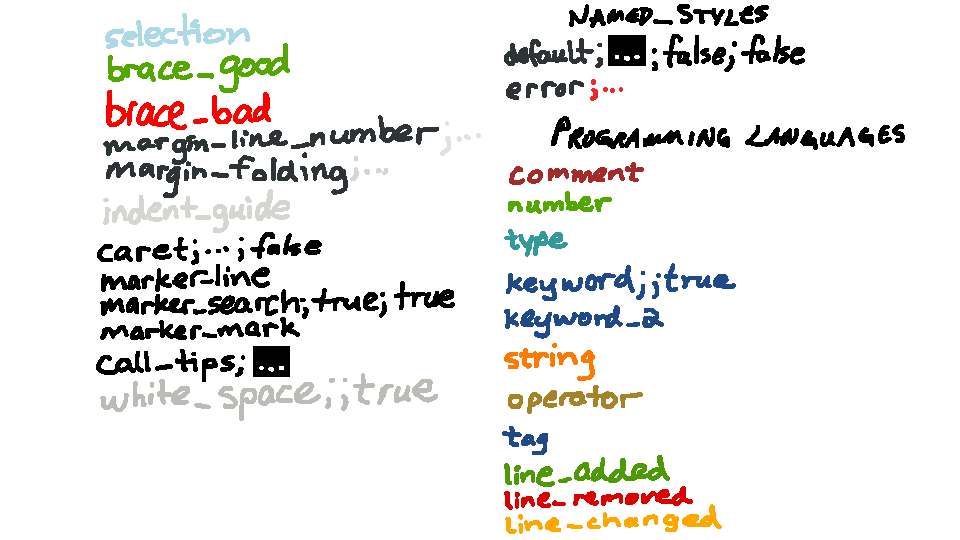 selection
brace_good
brace_bad
margin_line_number;...
margin_folding;...
indent_guide
caret;...;false
marker_line
marker_search;true;true
marker_mark
call_tips;...
white_space;;true
NAMED_STYLES
default;...;false;false
error;...
PROGRAMMING LANGUAGES
comment
number
type
keyword;;true
keyword_2
string
operator
tag
line_added
line_removed
line_changed